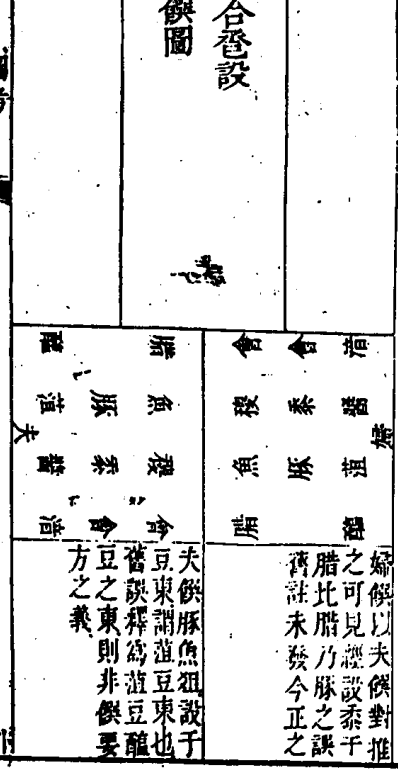 合巹設
饌圖
湆醬菹醢
婦
會黍豚
會稷魚腊
腊魚稷會
豚黍會
醢菹醬湆
夫
婦饌以夫饌對推
之可見經設黍于
腊北腊乃豚之誤
舊註未發今正之
夫饌豚魚俎設于
豆東謂菹豆東也
舊誤釋爲菹豆醢
豆之東則非饌要
方之義